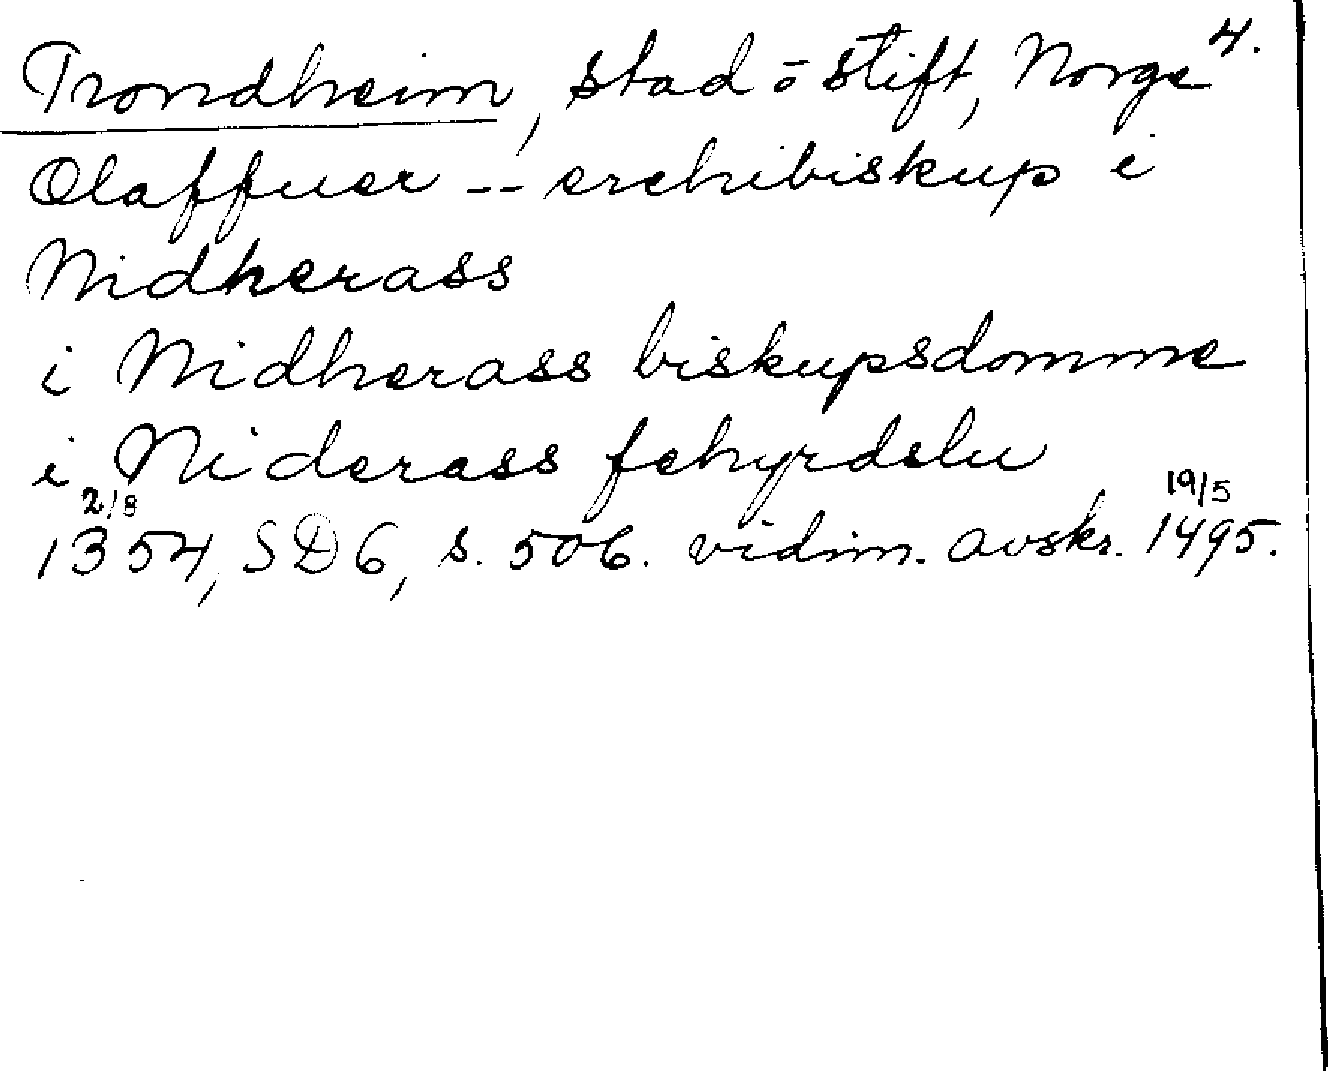 Trondheim, stad o stift, Norge 4.
Olaffuer -- erchibiskup i
Nidherass
i Nidherass biskupsdomme
i Niderass fehyrdslu
2/8 19/5
1354, SD6, s. 506. vidim. avskr. 1495.